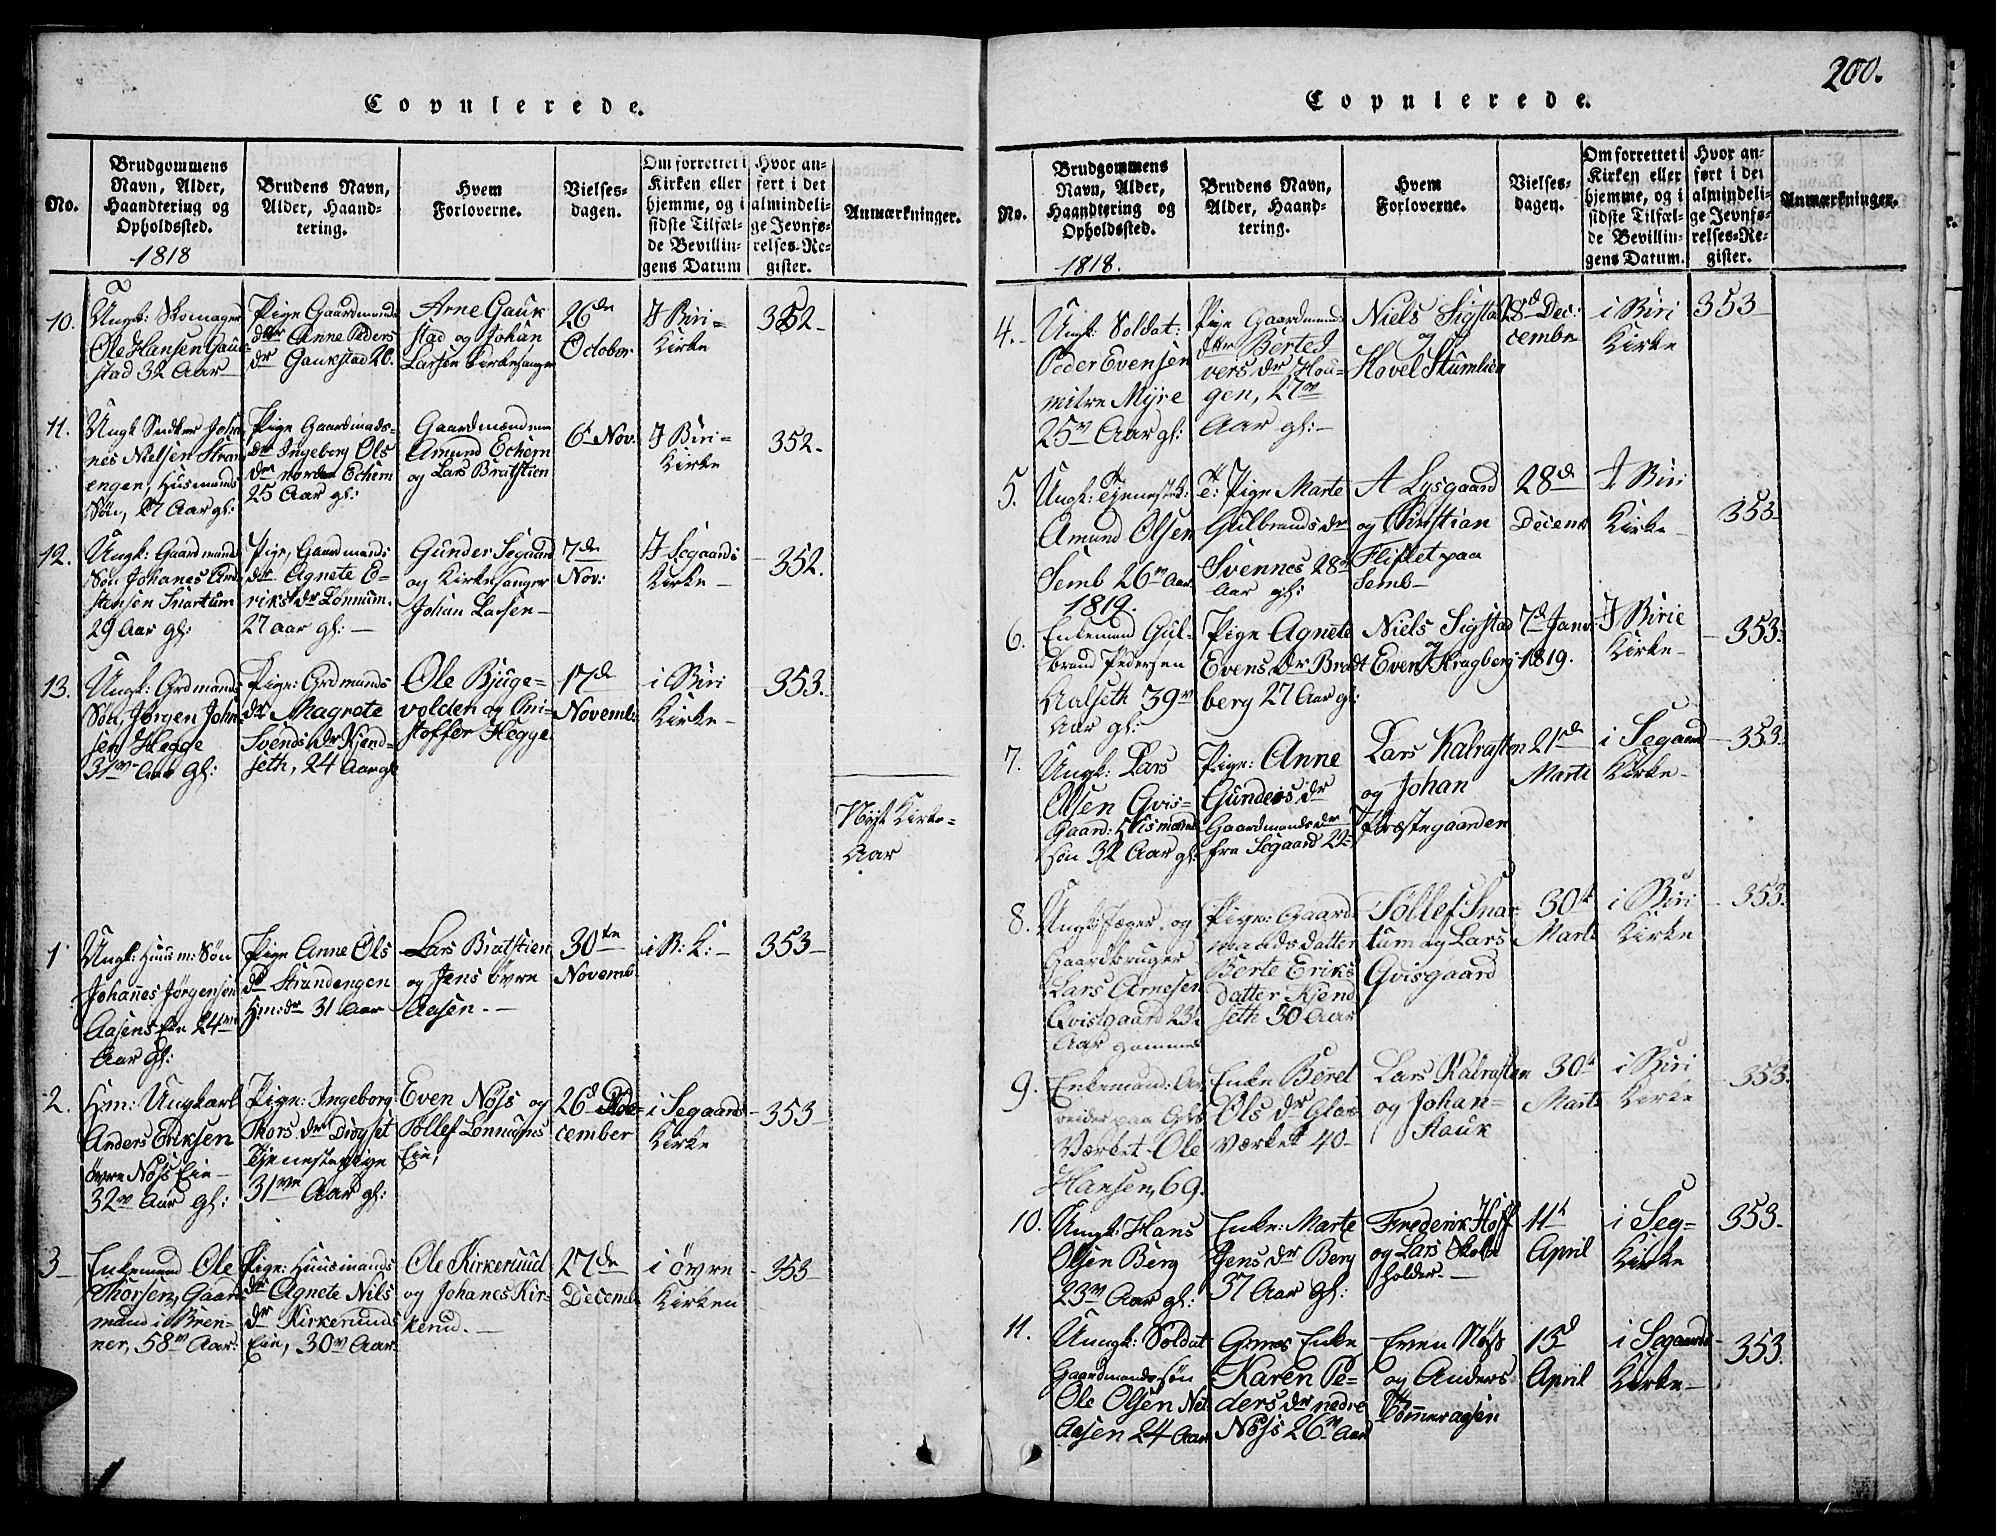 Copulerede.
No.
Brudgommens
Navn, Alder,
Haandtering og
Opholdssted.
1818
Brudens Navn,
Alder, Haand-
tering.
Hvem
Forloverne.
Vielses-
dagen.
Om forrettet i
Kirken eller
hjemme, og i
sidste Tilfæl-
de Bevillin-
gens Datum
Hvor an-
ført i det
almindeli-
ge Jevnfø-
relses-Re-
gister.
Anmærkninger.
10.
Ungk: Skomager
Ole Hansen Gauk-
stad 32 Aar
Pige Gaardmands
dtr Anne Peders
dr Gaukstad 26.
Arne Gauk
stad og Johan
Larsen Kirkesanger
26de
October
I Biri-
Kirke
352-
11.
Ungk Snedker Johan
nes Nielsen Stran
engen, Husmands
Søn, 27 Aar gl:
Pige Gaardmads-
dr Ingeborg Ols
dr nordre Echern
25 Aar gl:
Gaardmændene
Amund Echern
og Lars Bratstien
6t Nov:
I Biri-
Kirke
352-
12.
Ungk: Gaardmands
Søn Johanes
stensen Snartum
29 Aar gl:
Pige, Gaardmands
dtr Agnete E-
riks dr Lønnum.
27 aar gl:
Gunder Segaard
og Kirkesanger
Johan Larsen-
7de
Nov:
I Segaards
Kirke-
352.
13.
Ungk: Grdmands
Søn, Jørgen John-
sen Hegge
31 Aar gl:
Pige: Grdmands
dr Magrete
Svends dr Kjend-
seth, 24 Aar gl
Ole Bjuge-
volden og Cri-
stoffer Hegge
17de
Novemb:
i Biri
Kirke-
353.
Nyt Kirke-
Aar
1
Ungk: Huusm: Søn
Johanes Jørgensen
Aasens Eie 24
Aar gl:
Pige Anne Ols
dr Strandengen
Hm: dr 31 Aar
Lars Bratstien
og Jens øvre
Aasen.-
30te
Novemb
i B: K:-
353-
2.
Hm: Ungkarl
Anders Eriksen
øvre Nøss Eie-
32 Aar gl:
Pige: Ingeborg
Thors dr Drogset
Tjenestepige
31 Aar gl:
Even Nøss og
Tollef Lønnegns
Eie,
26d
cember
i Segaards
Kirke
353-
3-
Enkemand Ole
Thorsen, Gaard
mand i Bren-
ner, 58 Aar:
Pige: Huusmands
dr Agnete Nils
dr Kirkeruds
Eie, 30 Aar
Ole Kirkeruud
og Johanes Kir-
kerud.-
27de
Decemb
i øvre
Kirken
353-
200.
Copulerede.
No.
Brudgommens
Navn, Alder,
Haandtering og
Opholdssted.
1818.
Brudens Navn,
Alder, Haand-
tering.
Hvem
Forloverne.
Vielses-
dagen.
Om forrettet i
Kirken eller
hjemme, og i
sidste Tilfæl-
de Bevillin-
gens Datum.
Hvor an-
ført i det
almindeli-
ge Jevnfø-
relses-Re-
gister.
Anmærkninger.
4.-
Ungk: Soldat:
Peder Evensen
milre Myre
25 Aar gl:
Pige Gaardmands
dtr Berte
vers dr Hou-
gen, 27
Aar gl:-
Niels Sigstad
og
Hovel Stumlien
28d De-
cembr
i Biri
Kirke
353
5.
Ungk: Tjenestek:
Amund Olsen
Semb 26 Aar
T: Pige Marte
Gulbrands dr
Svennes 28
Aar gl:
A Lysgaard
og Christian
Fliflet paa
Semb-
28de
Decemb
I Biri
Kirke-
353
1819.
6.
Enkemand Gul-
brand Pedersen
Nalseth 39
Aar gl:
Pige Agnete
Evens Dr Bradt
berg 27 Aar gl:
Niels Sigstad
Even Kragberg
7d Janv:
1819.
I Birie
Kirke-
353.
7.
Ungk: Lars
Olsen Qvis-
Gaard: Husmands
søn 32 Aar gl:
Pige: Anne
Gunders dr
Gaardmands dr
fra Segaard 22
Lars Kalrasten
og Johan
Præstegaarden
21de
Marti
i Segaard
Kirke-
353.
8.
Ungk: Jæger, og
Gaardbruger
Lars Arnesen
Qvisgaard 23
Aar gammel
Pige: Gaard-
mands datter
Berte Eriks
datter Kjend
seth 30 Aar
Tollef Snar
tum og Lars
Qvisgaard
30t
Marti
i Biri
Kirke
353.
9.
Enkemand: Ar
beider paa Glas
Værket Ole
Hansen, 69.
Enke Beret
Ols dr Glas
værket 40-
Lars Kalrasten
og Johan-
Stauk
30t
Marti
i Biri
Kirke
353.
10.
Ungk: Hans
Olsen Berg
23 Aar gl:
Enke: Marte
Jens dr Berg
37 Aar gl:
Frederik Hoff
og Lars Skole
holder-
11t
April
i Seg-
Kirke
353-
11.
Ungk: Soldat
Gaardmandssøn
Ole Olsen Ned
Aasen 24 Aar
Enke
Karen Pe-
ders dr nedre
Nøss 26 Aar
Even Nøss
og Anders
13d
April
i Segaards
Kirke-
353.